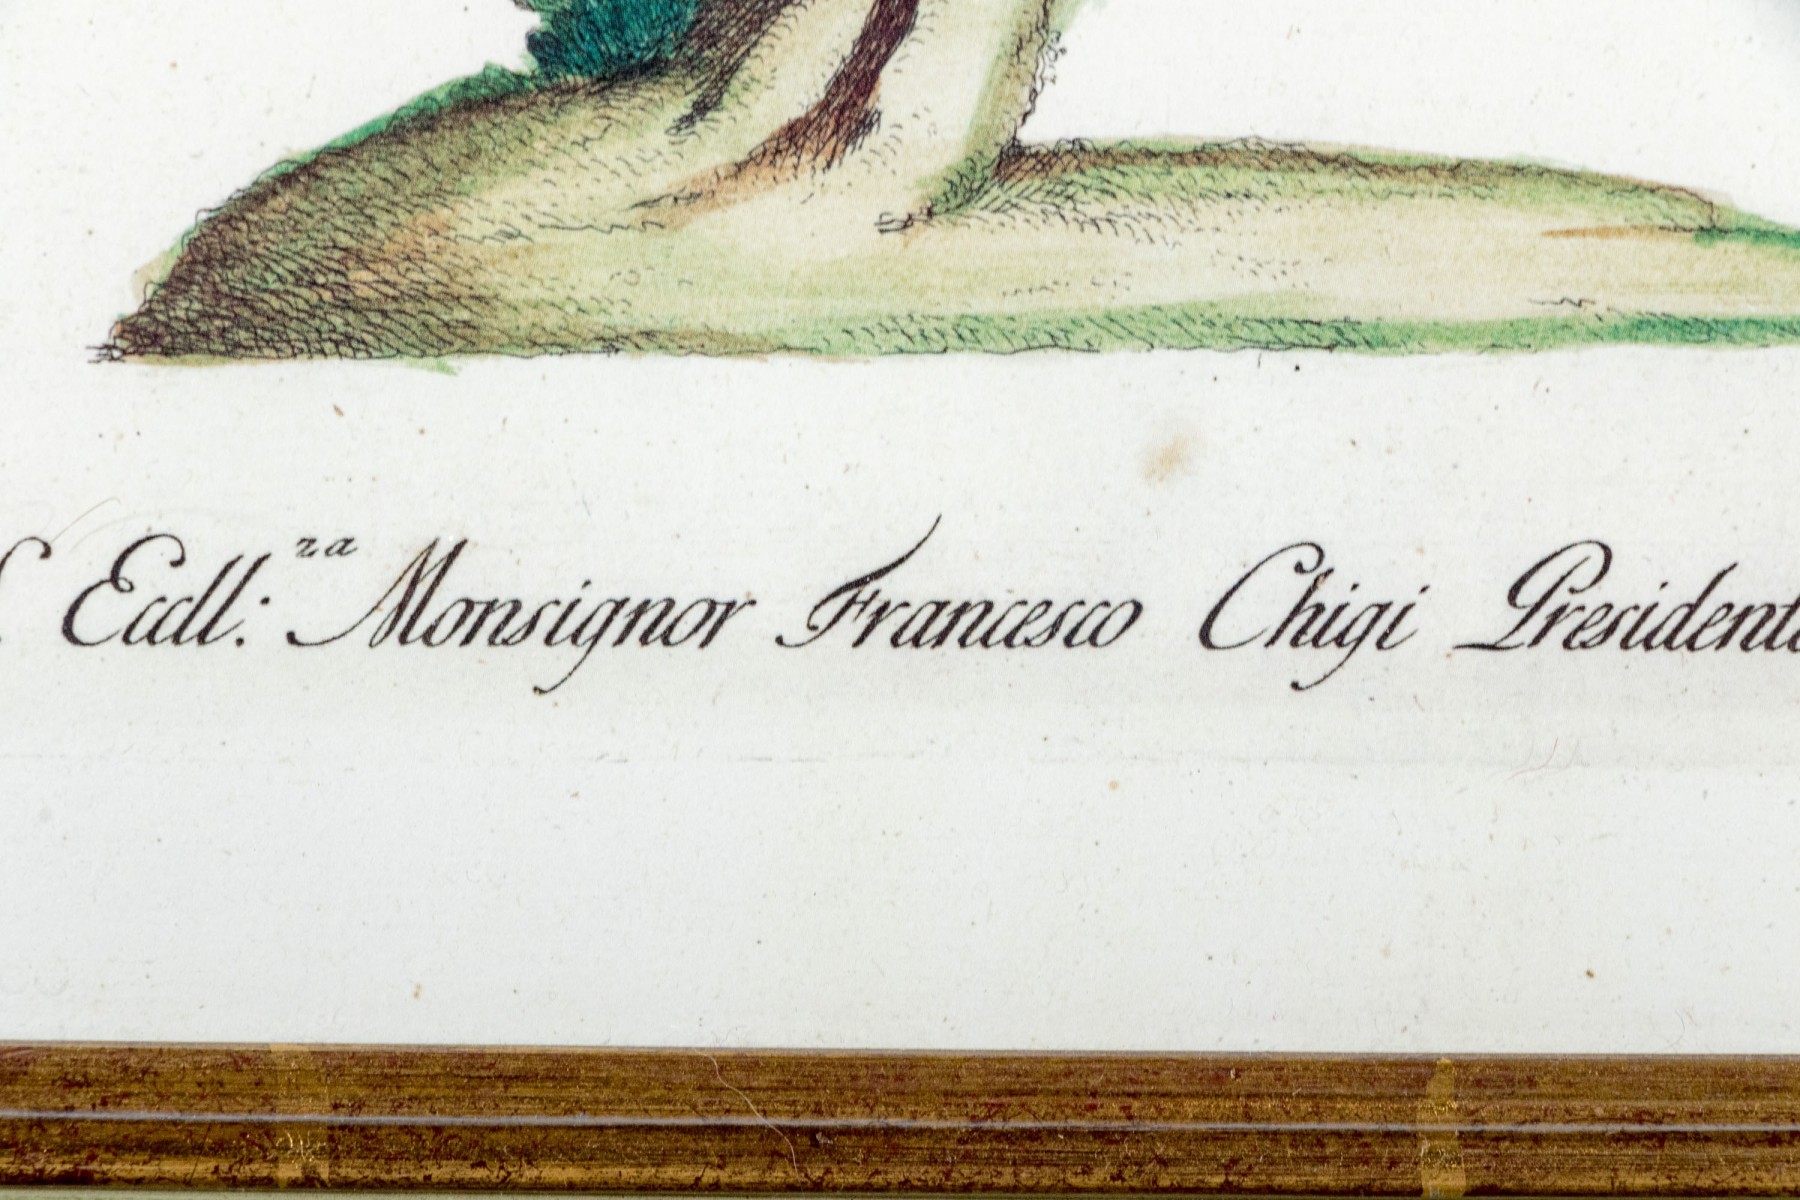 Eccll:za Monsignor Francesco Chigi Presidente